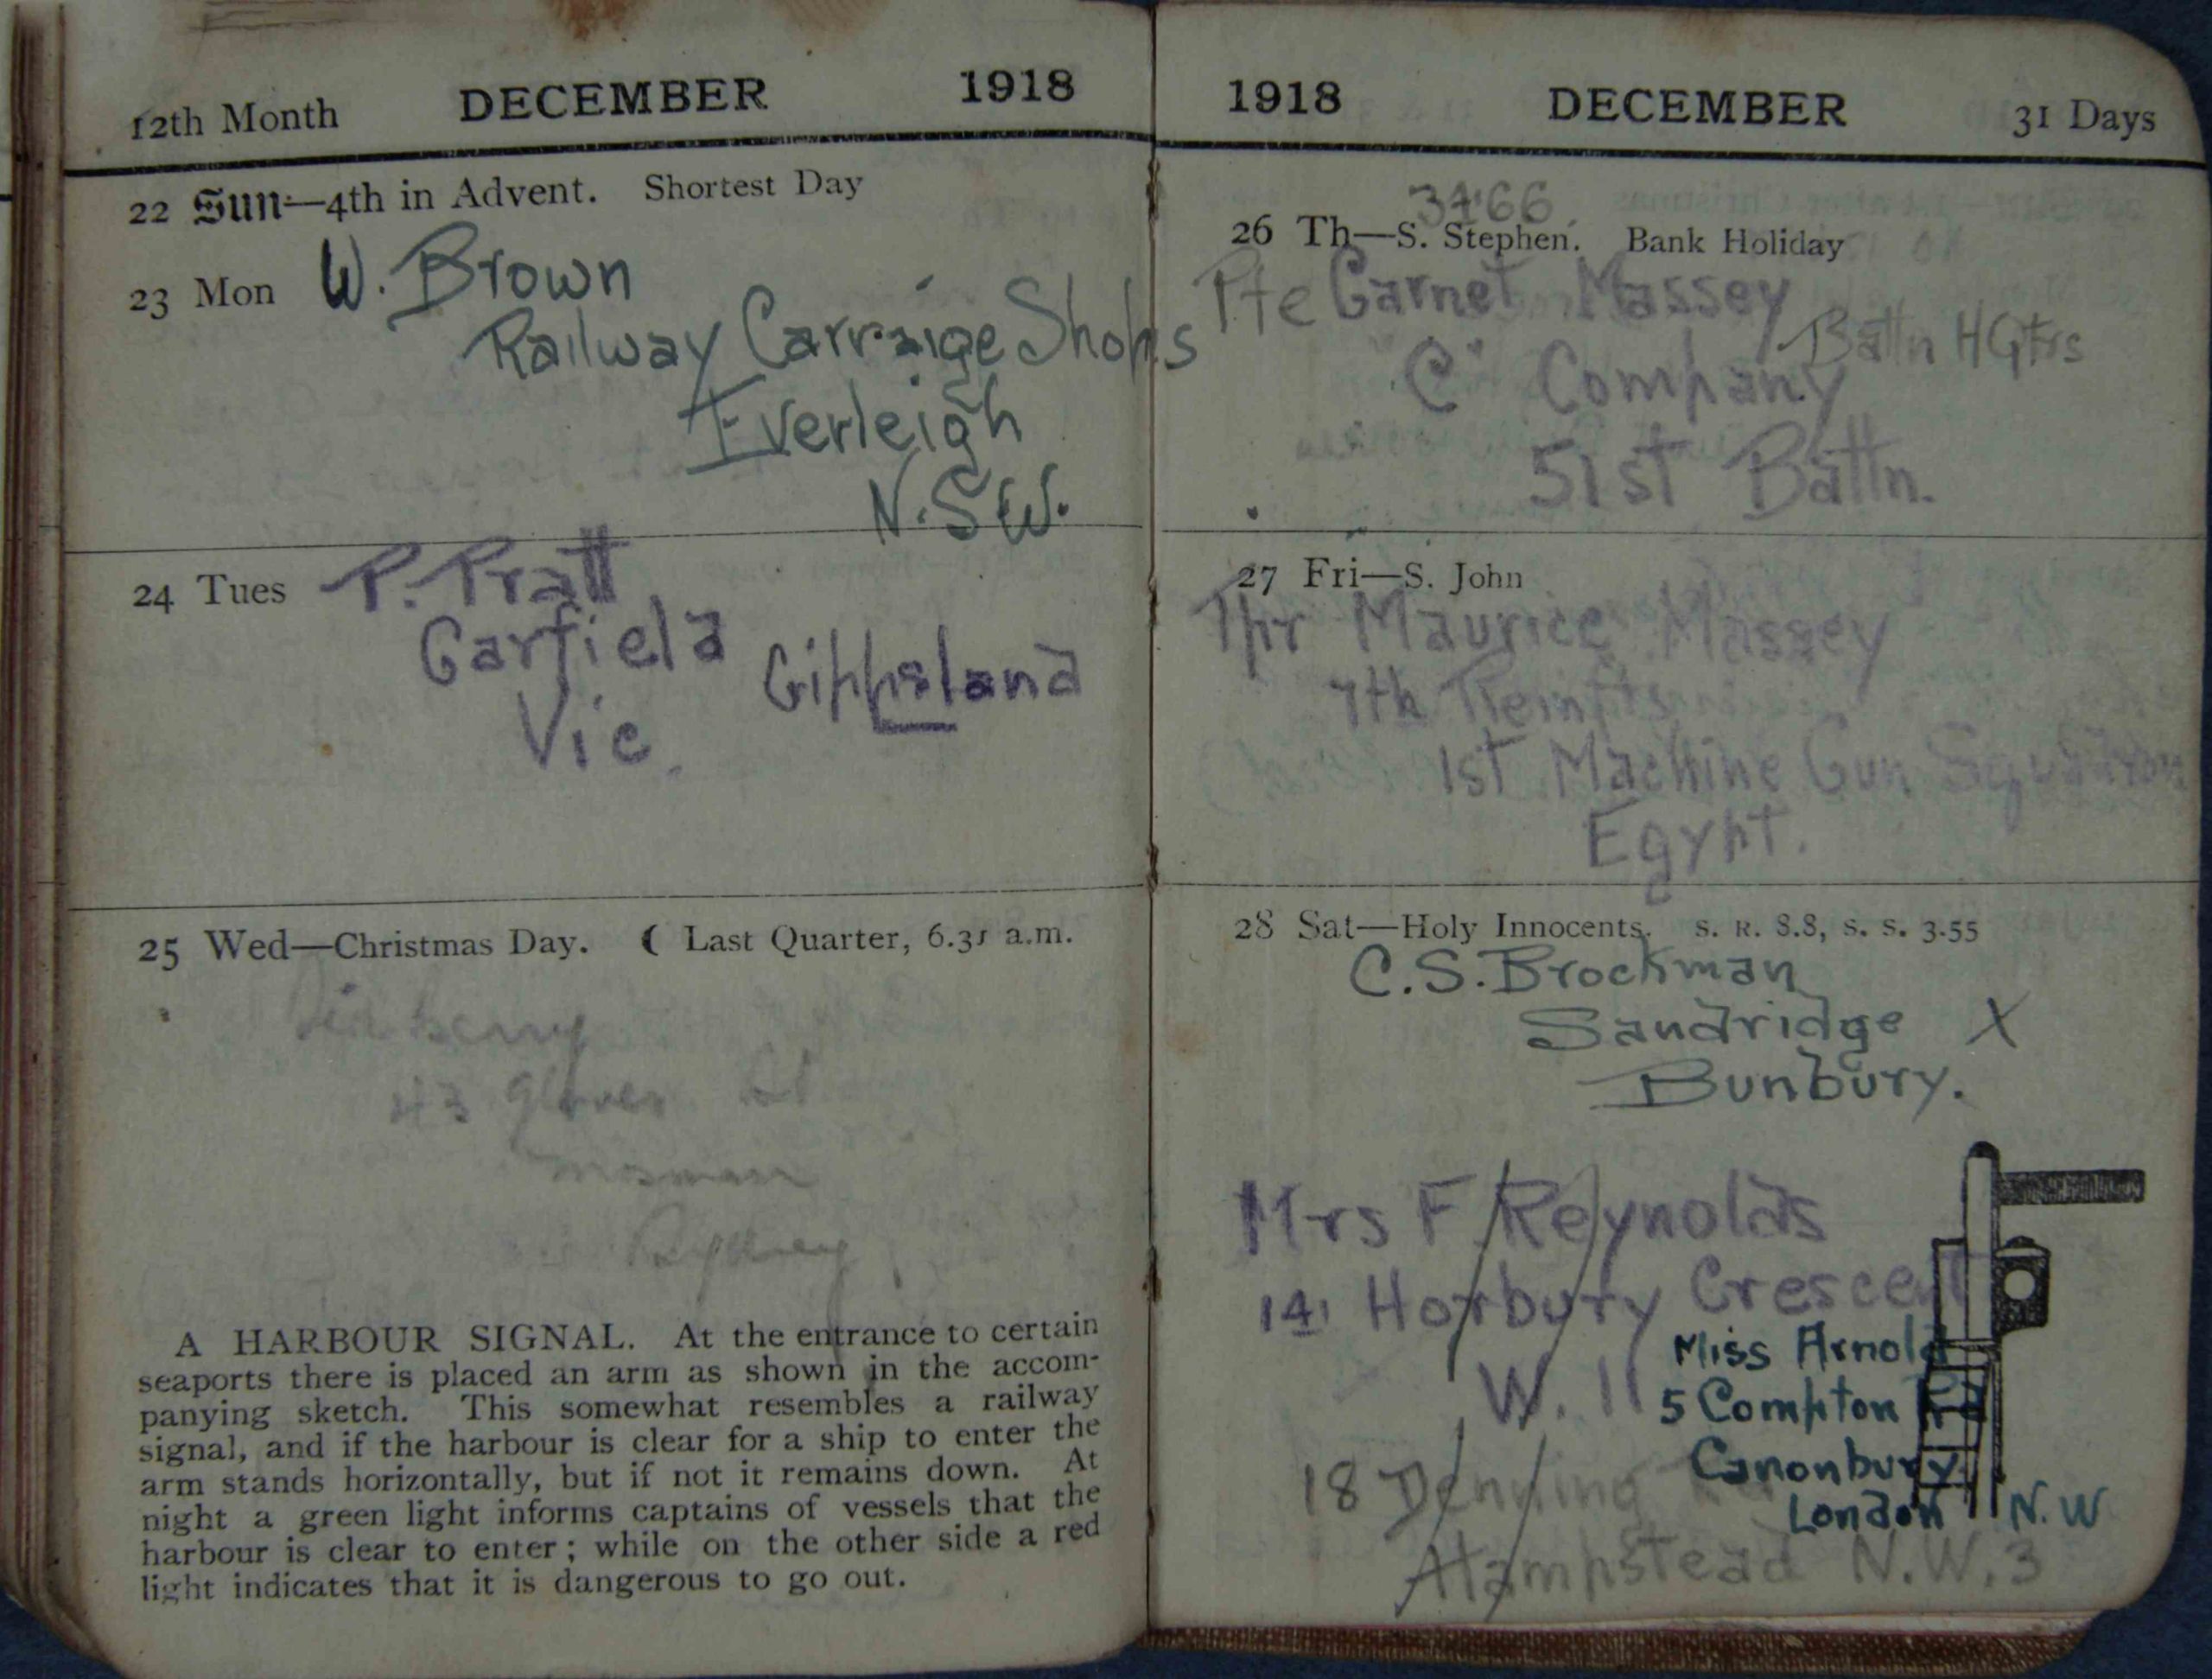 12th Month DECEMBER 1918
22 Sun—4th in Advent. Shortest Day
23 Mon W. Brown
Railway Carraige Shops
Everleigh
N.S.W.
24 Tues P. Pratt
Garfield Gippsland
Vic.
25 Wed—Christmas Day. ☾ Last Quarter, 6.31 a.m.
43 Glover St
Mosman
Sydney
A HARBOUR SIGNAL. At the entrance to certain
seaports there is placed an arm as shown in the accom-
panying sketch. This somewhat resembles a railway
signal, and if the harbour is clear for a ship to enter the
arm stands horizontally, but if not it remains down. At
night a green light informs captains of vessels that the
harbour is clear to enter; while on the other side a red
light indicates that it is dangerous to go out.
1918 DECEMBER 31 Days
3466.
26 Th—S. Stephen. Bank Holiday
Pte Garnet Massey
Battn HQtrs
"C" Company
51st Battn.
27 Fri—S. John
Tpr Maurice Massey
7th Reinfts
1st Machine Gun Squadron
Egypt.
28 Sat—Holy Innocents. S. R. 8.8, S. S. 3.55
C.S. Brockman
Sandridge X
Bunbury.
Mrs F Reynolds
14 Horbury Crescent
W. 11
Miss Arnold
5 Compton Rd
Canonbury
London N.W
18 Denning Rd
Hampstead N.W.3